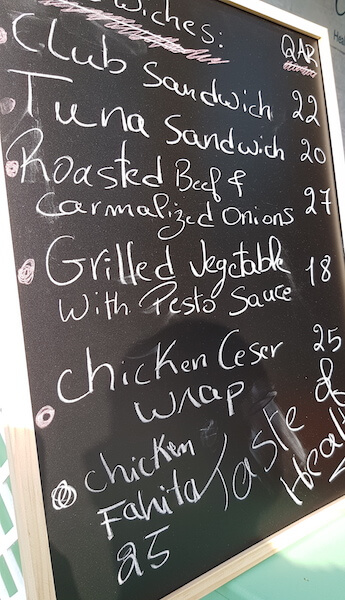 wiches:
QAR
Club Sandwich 22
Tuna Sandwich 20
Roasted Beef &
Carmalized Onions 27
Grilled Vegetable
With Pesto Sauce 18
Chicken Ceser 25
Wrap
Chicken
Fahita
25
Taste &
Healt